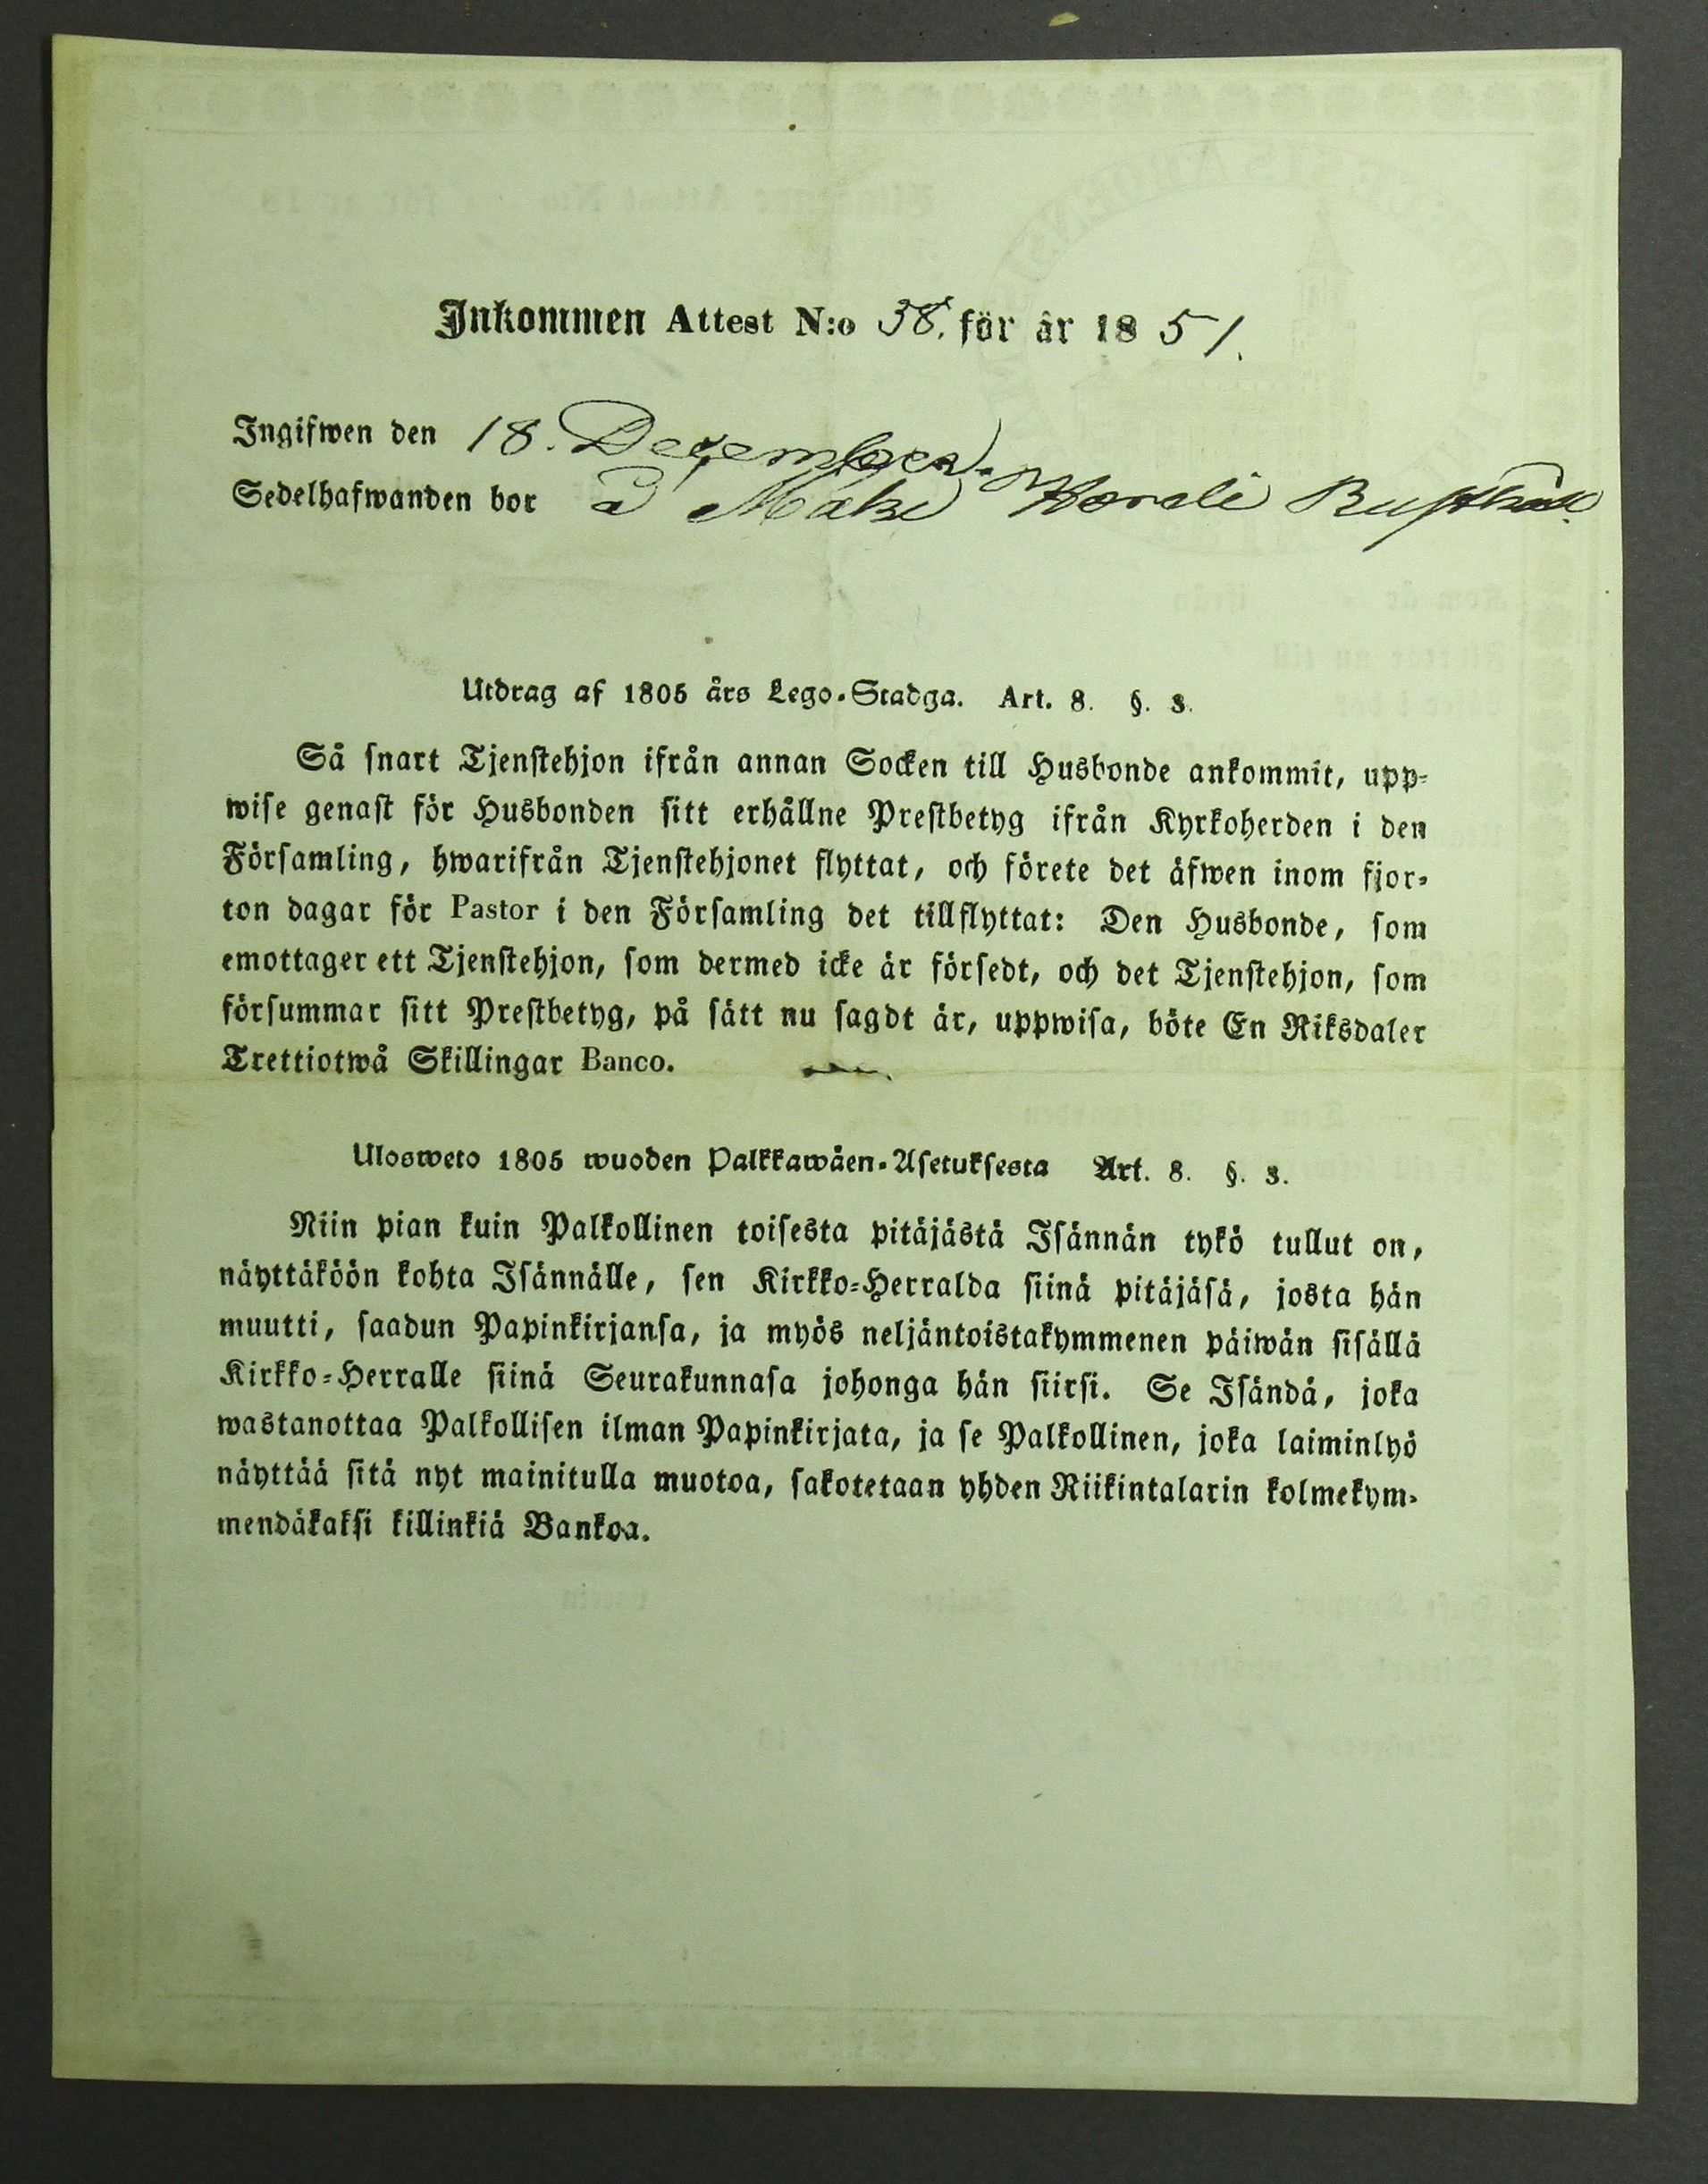 Inkommen Attest N:o 38. för år 1851.
Ingifwen den 18. December.
Sedelhafwanden bor å Rusthåll.
Utdrag af 1805 års Lego-Stadga. Art. 8. §. 3.
Så snart Tjenstehjon ifrån annan Socken till Husbonde ankommit, upp-
wise genast för Husbonden sitt erhållne Prestbetyg ifrån Kyrkoherden i den
Församling, hwarifrån Tjenstehjonet flyttat, och förete det äfwen inom fjor-
ton dagar för Pastor i den Församling det tillflyttat: Den Husbonde, som
emottager ett Tjenstehjon, som dermed icke är försedt, och det Tjenstehjon, som
försummar sitt Prestbetyg, på sätt nu sagdt är, uppwisa, böte En Riksdaler
Trettiotwå Skillingar Banco.
Ulosweto 1805 wuoden Palkkawäen-Asetuksesta Art. 8. §. 3.
Niin pian kuin Palkollinen toisesta pitäjästä Isännän tykö tullut on,
näyttäköön kohta Isännälle, sen Kirkko-Herralda siinä pitäjäsä, josta hän
muutti, saadun Papinkirjansa, ja myös neljäntoistakymmenen päiwän sisällä
Kirkko-Herralle siinä Seurakunnasa johonga hän siirsi. Se Isändä, joka
wastanottaa Palkollisen ilman Papinkirjata, ja se Palkollinen, joka laiminlyö
näyttää sitä nyt mainitulla muotoa, sakotetaan yhden Riikintalarin kolmekym-
mendäkaksi killinkiä Bankoa.